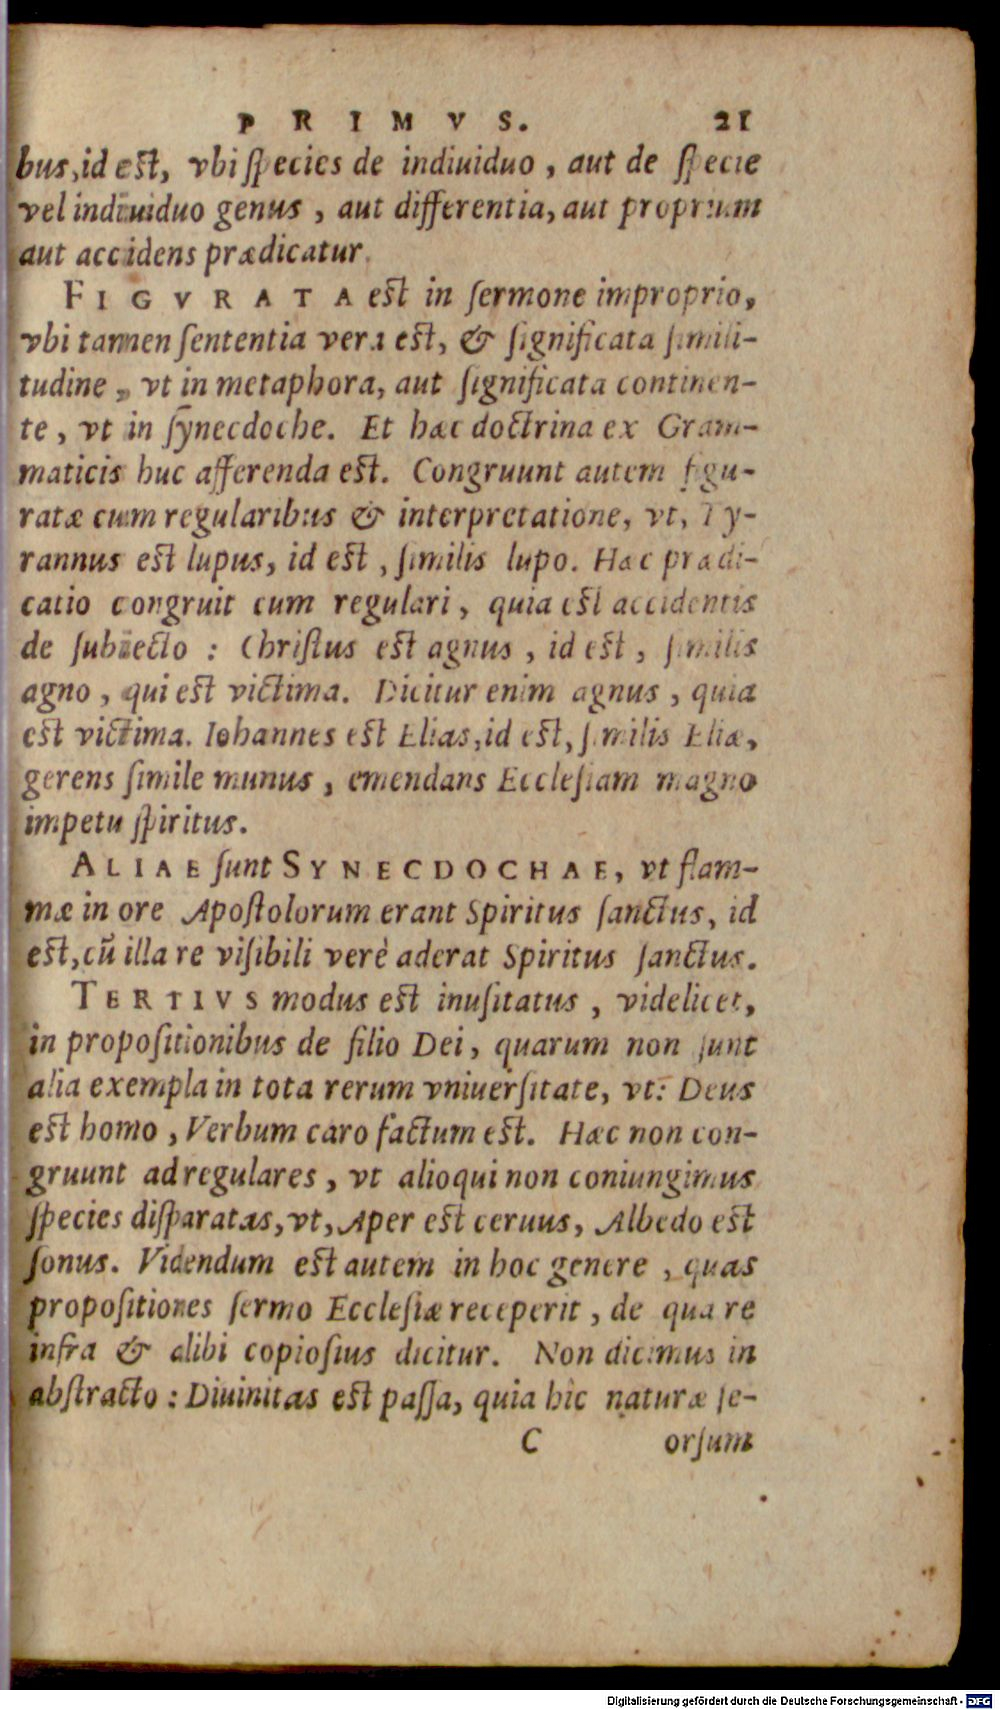 PRIMVS. 21
bus, id est, vbi species de indiuiduo, aut de specie
vel indiuiduo genus, aut differentia, aut proprium
aut accidens prædicatur.
FIGVRATA est in sermone improprio,
vbi tamen sententia vera est, & significata simili-
tudine, vt in metaphora, aut significata continen-
te, vt in synecdoche. Et hæc doctrina ex Gram-
maticis huc afferenda est. Congruunt autem figu-
ratæ cum regularibus & interpretatione, vt, Ty-
rannus est lupus, id est, similis lupo. Hæc prædi-
catio congruit cum regulari, quia est accidentis
de subiecto: Christus est agnus, id est, similis
agno, qui est victima. Dicitur enim agnus, quia
est victima. Iohannes est Elias, id est, similis Eliæ,
gerens simile munus, emendans Ecclesiam magno
impetu spiritus.
ALIAE sunt SYNECDOCHAE, vt flam-
mæ in ore Apostolorum erant Spiritus sanctus, id
est, cũ illa re visibili verè aderat Spiritus sanctus.
TERTIVS modus est inusitatus, videlicet,
in propositionibus de filio Dei, quarum non sunt
alia exempla in tota rerum vniuersitate, vt: Deus
est homo, Verbum caro factum est. Hæc non con-
gruunt ad regulares, vt alioqui non coniungimus
species disparatas, vt, Aper est ceruus, Albedo est
sonus. Videndum est autem in hoc genere, quas
propositiones sermo Ecclesiæ receperit, de qua re
infra & alibi copiosius dicitur. Non dicimus in
abstracto: Diuinitas est passa, quia hic naturæ se-
C orsum
Digitalisierung gefördert durch die Deutsche Forschungsgemeinschaft - DFG